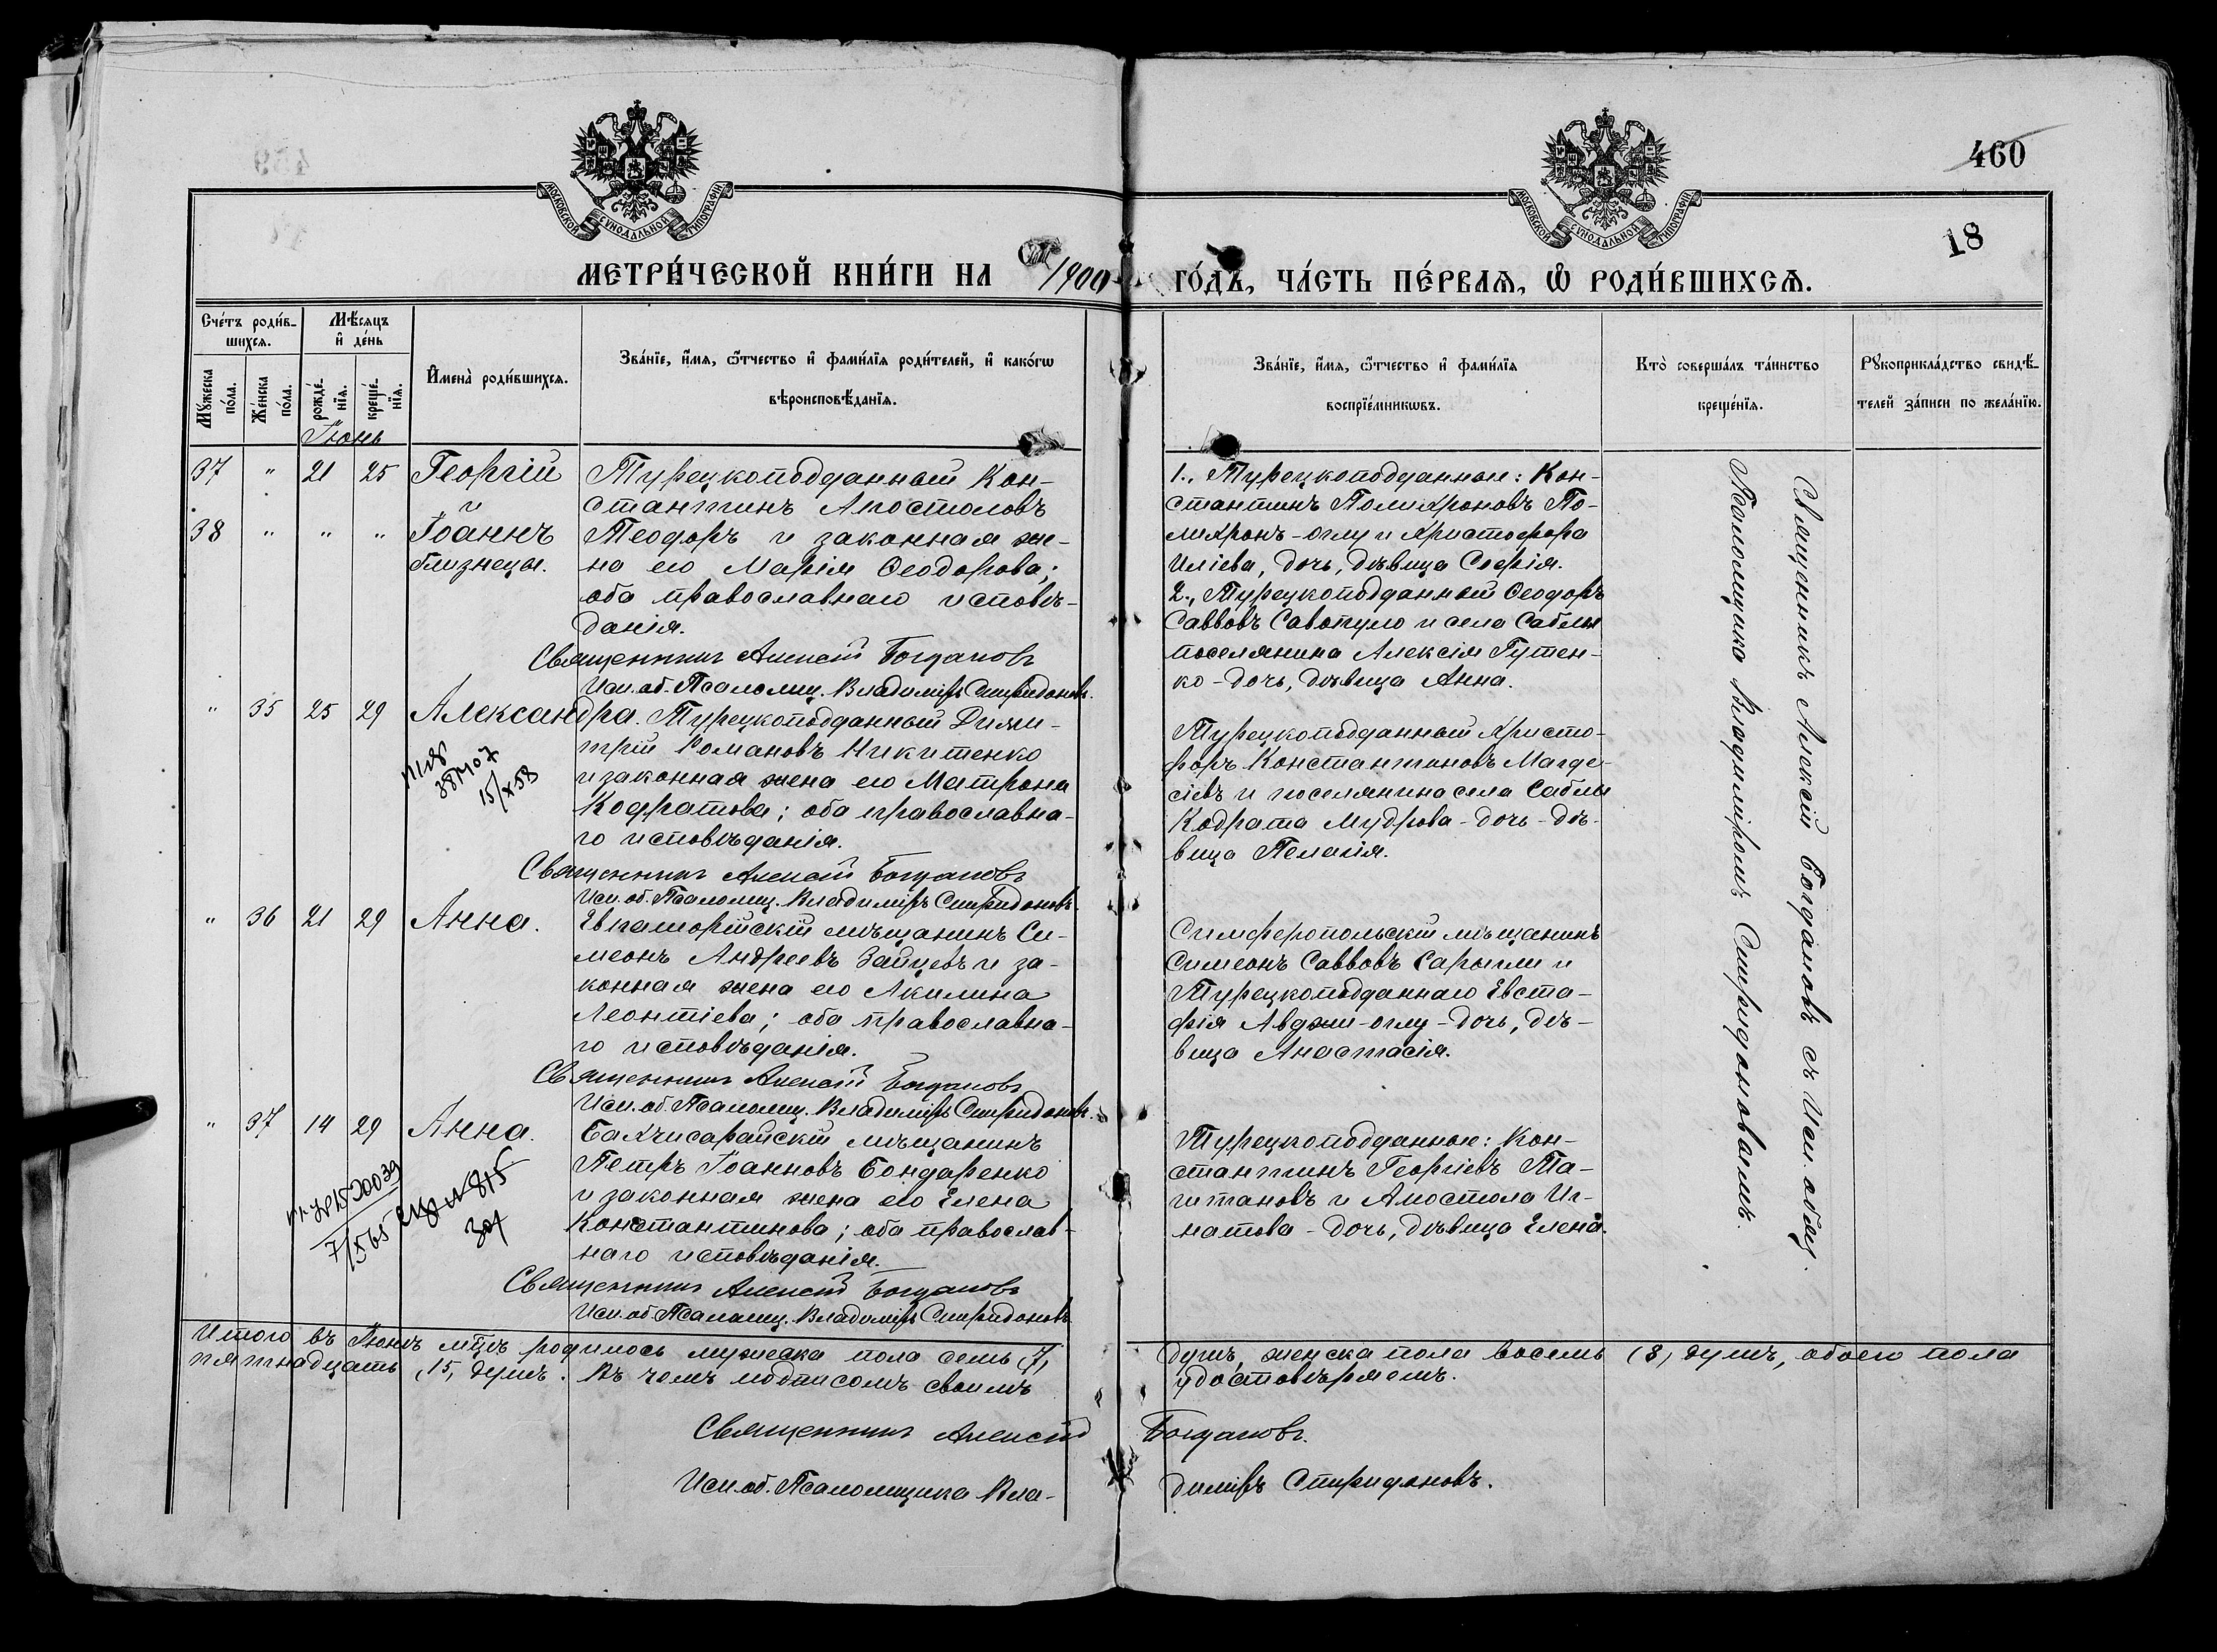 460
18
МОСКОВСКОЙ СѴНОДАЛЬНОЙ ТИПОГРАФІИ
МОСКОВСКОЙ СѴНОДАЛЬНОЙ ТИПОГРАФІИ
МЕТРИ́ЧЕСКОЙ КНИ́ГИ НА 1900 ГО́ДЪ, ЧА́СТЬ ПЕ́РВАѦ, Ѽ РОДИ́ВШИХСѦ.
Сче́тъ роди́в-
шихсѧ.
Мѣ́сѧцъ
и҆ де́нь
Мꙋ́жеска
по́ла.
Же́нска
по́ла.
рожде́-
нїѧ.
креще́-
нїѧ.
И҆мена̀ роди́вшихсѧ.
Зва́нїе, и҆́мѧ, ѻ҆́тчество и҆ фами́лїѧ роди́телей, и҆ како́гѡ
вѣроисповѣ́данїѧ.
Зва́нїе, и҆́мѧ, ѻ҆́тчество и҆ фами́лїѧ
воспрїе́мникѡвъ.
Кто̀ соверша́лъ та́инство
креще́нїѧ.
Рꙋкоприкла́дство свидѣ́-
телей за́писи по жела́нїю.
Іюнь
37 " 21 25 Георгій
и
38 " " " Іоаннъ
близнецы.
Турецкоподданный Кон-
стантинъ Апостоловъ
Теодоръ и законная же-
на его Марія Ѳеодорова;
оба православнаго исповѣ-
данія.
Священникъ Алексій Богдановъ
Исп. об. Псаломщ. Владиміръ Спиридоновъ.
1., Турецкоподданные: Кон-
стантинъ Полихроновъ По-
лихронъ-оглу и Христофора
Иліева, дочь, дѣвица Софія.
2., Турецкоподданный Ѳеодоръ
Саввовъ Савопуло и села Саблы
поселянина Алексія Гутен-
ко - дочь, дѣвица Анна.
" 35 25 29 Александра.
Турецкоподданный Дими-
трій Романовъ Никитенко
и законная жена его Матрона
Кодратова; оба православна-
го исповѣданія.
Священникъ Алексій Богдановъ
Исп. об. Псаломщ. Владиміръ Спиридоновъ.
15/X 58
Турецкоподданный Христо-
форъ Константиновъ Магде-
сіевъ и поселянина села Саблы
Кодрата Мудрова - дочь - дѣ-
вица Пелагія.
" 36 21 29 Анна.
Евпаторійскій мѣщанинъ Си-
меонъ Андреевъ Зайцевъ и за-
конная жена его Акилина
Леонтіева; оба православна-
го исповѣданія.
Священникъ Алексій Богдановъ
Исп. об. Псаломщ. Владиміръ Спиридоновъ.
Симферопольскій мѣщанинъ
Симеонъ Саввовъ Сарыгли и
Турецкоподданнаго Евста-
фія Авджи-оглу - дочь, дѣ-
вица Анастасія.
" 37 14 29 Анна.
Бахчисарайскій мѣщанинъ
Петръ Іоанновъ Бондаренко
и законная жена его Елена
Константинова; оба православ-
наго исповѣданія.
Священникъ Алексій Богдановъ
Исп. об. Псаломщ. Владиміръ Спиридоновъ.
Турецкоподданные: Кон-
стантинъ Георгіевъ Та-
и Апостола Иг-
натова - дочь, дѣвица Елена.
Священникъ Алексій Богдановъ съ Исп. обяз.
Псаломщика Владиміромъ Спиридоновымъ.
Итого въ Іюнѣ мцѣ родилось мужеска пола семь (7) душъ, женска пола восемь (8) душъ, обоего пола
пятнадцать (15) душъ. Въ чемъ подписомъ своимъ удостовѣряемъ.
Священникъ Алексій Богдановъ.
Исп. об. Псаломщика Владиміръ Спиридоновъ.